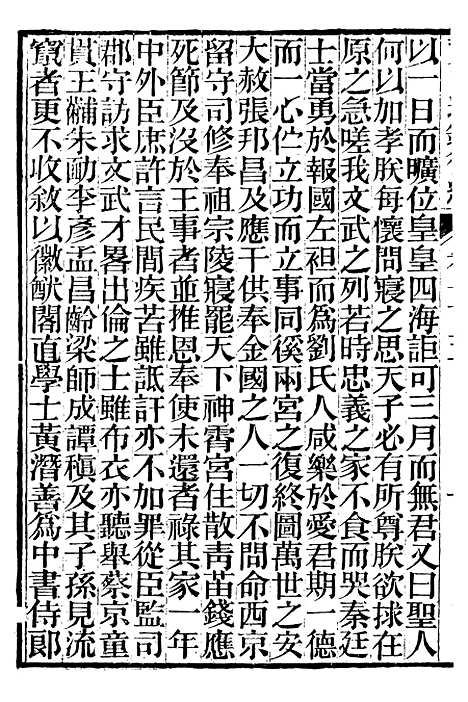 以一日而曠位皇皇四海詎可三月而無君又曰聖人
何以加孝朕每懷問寢之思天子必有所尊朕欲捄在
原之急嗟我文武之列若時忠義之家不食而哭秦廷
士當勇於報國左袒而爲劉氏人咸樂於愛君期一德
而一心伫立功而立事同徯兩宮之復終圖萬世之安
大赦張邦昌及應干供奉金國之人一切不問命西京
留守司修奉祖宗陵寢罷天下神霄宮住散青苗錢應
死節及沒於王事者並推恩奉使未還者祿其家一年
中外臣庶許言民間疾苦雖詆訐亦不加罪從臣監司
郡守訪求文武才畧出倫之士雖布衣亦聽舉蔡京童
貫王黼朱勔李彥孟昌齡梁師成譚稹及其子孫見流
竄者更不收敘以徽猷閣直學士黃潛善爲中書侍郞